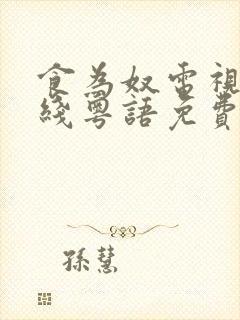 食為奴電視
綫粵語免費
孫慧